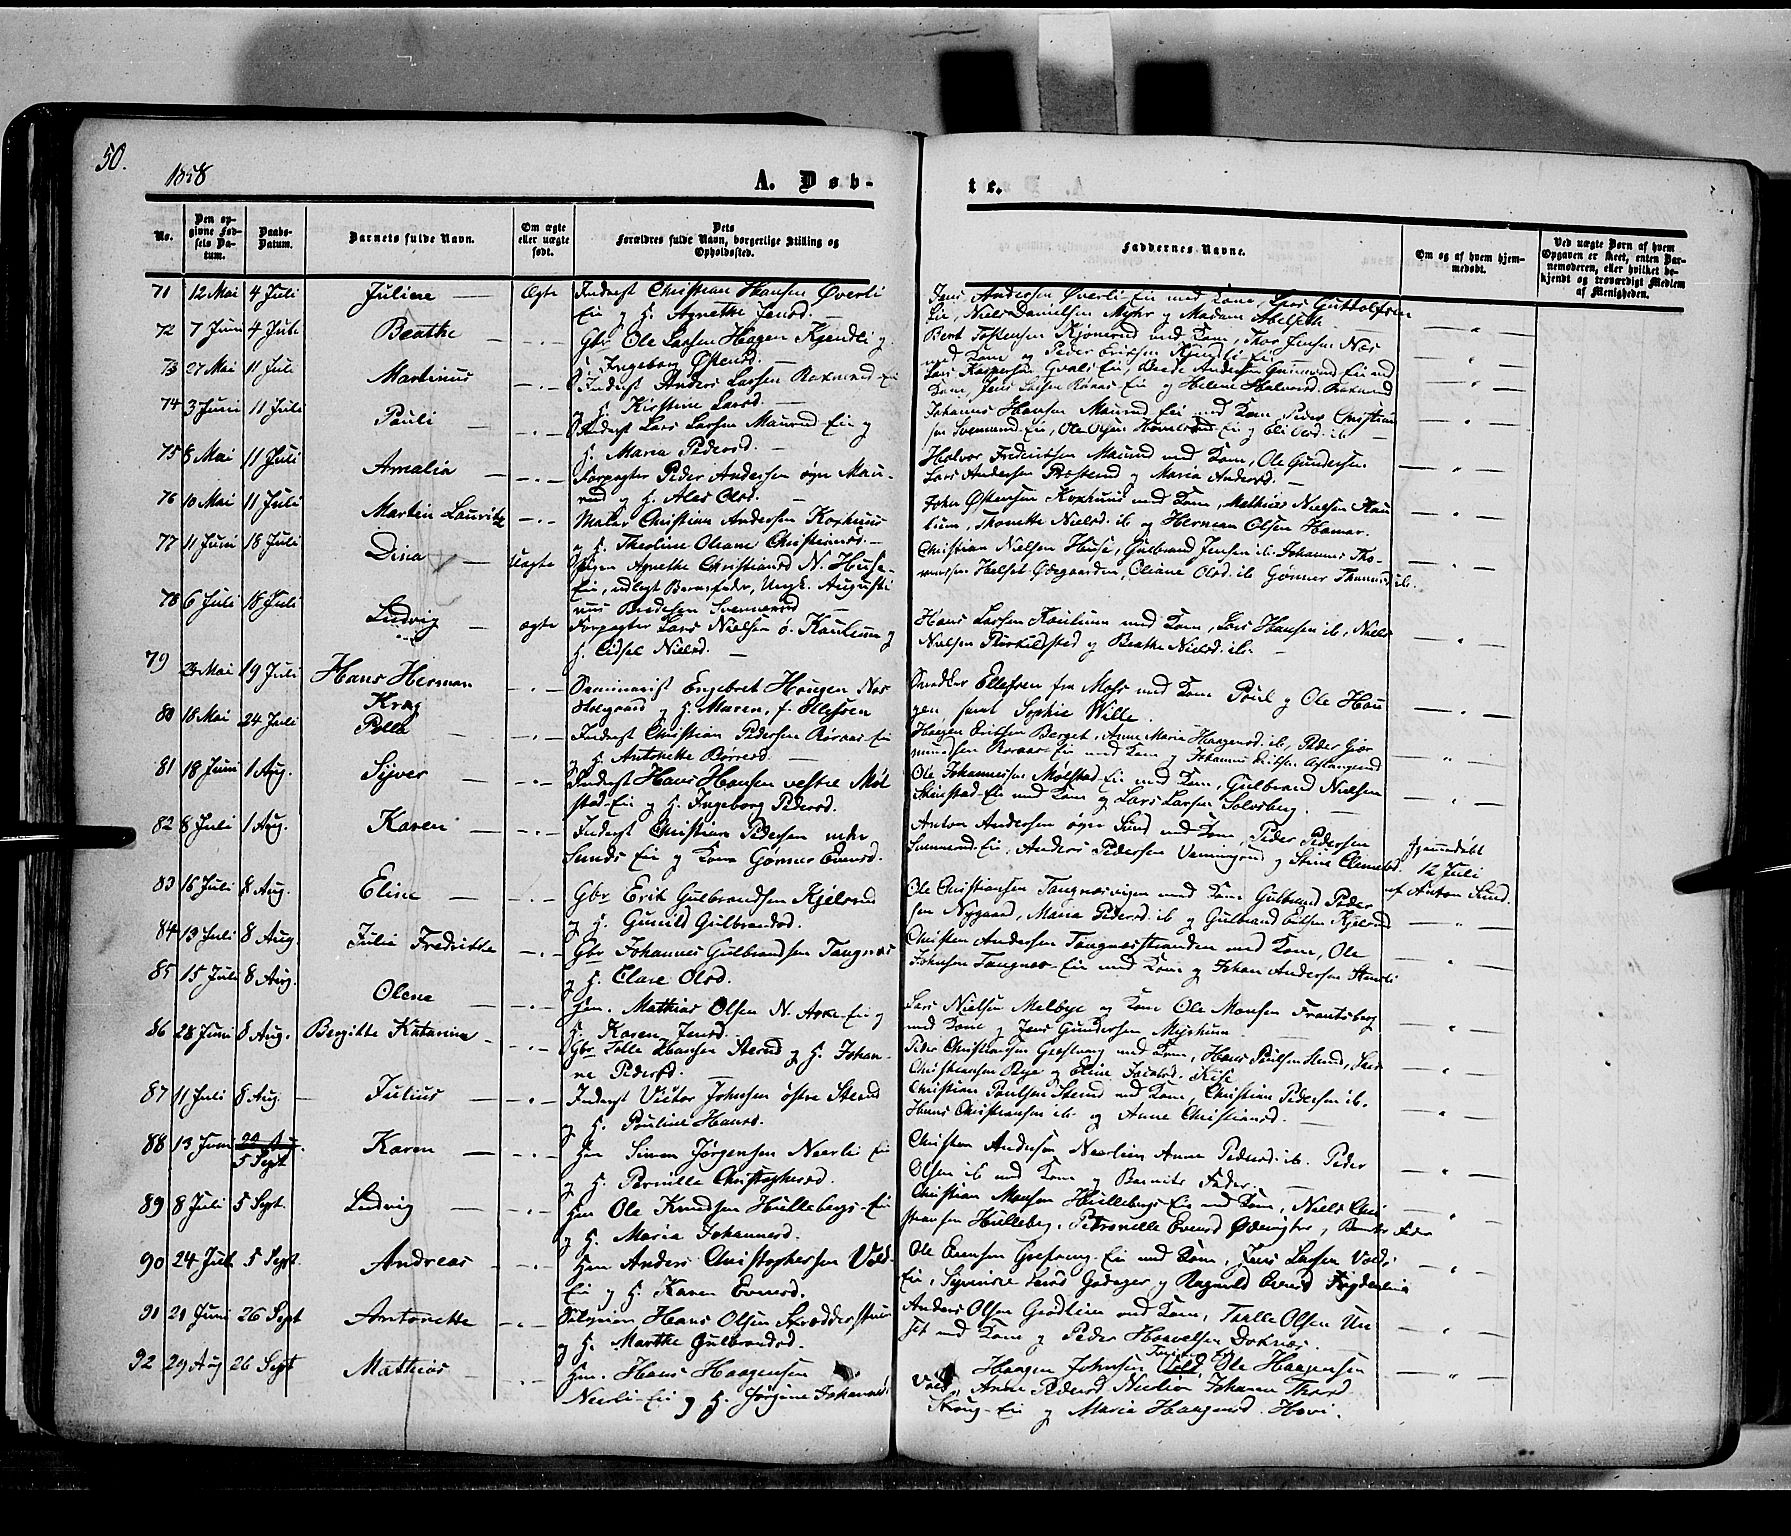 50.
1858
A. Døb-
te.
No.
Den op-
givne Fød-
sels Da-
tum.
Daabs-
Datum.
Barnets fulde Navn.
Om ægte
eller uægte
født.
Dets
Forældres fulde Navn, borgerlige Stilling og
Opholdssted.
Faddernes Navne.
Om og af hvem hjem-
medøbt.
Ved uægte Børn af hvem
Opgaven er skeet, enten Bar-
nemoderen, eller hvilket be-
kjendt og troværdigt Medlem
af Menigheden.
71 12 Mai 4 Juli Juline Ægte Inderst Christian Hansen Øverli
Eie og H. Agnethe Jensd.
Jens Andersen Øverli Eie med Kone, Lars Guttolfsen
Eie, Niels Danielsen Myhr og Madam Abelseth
72 7 Juni 4 Juli Beathe Gbr Ole Larsen Haagen Kjendli og
H. Ingeborg Østensd.
Bert Tostensen Kjønerud med Kone, Thor Jensen Næs
med Kone og Peder Eriksen Kjendli Eie
73 27 Mai 11 Juli Martinus Inderst Anders Larsen Eie
og H. Kirstine Larsd.
Lars Kaspersen Eie, Andersen Eie med
Kone, Jens Larsen Rønæs Eie og Helene Halvorsd.
74 3 Juni 11 Juli Pauli Inderst Lars Larsen Maurud Eie og
H. Maria Pedersd.
Johannes Hansen Maurud Eie med Kone, Peder Christian
sen Svennerud Eie, Ole Olsen Eie og Eli Olsd. ib.
75 8 Mai 11 Juli Amalia Forpagter Peder Andersen øvre Mau-
rud og H. Ales Olsd.
Halvor Fredriksen Maurud med Kone, Ole Gundersen
Lars Andersen Præsterud og Maria Andersd.
76 10 Mai 11 Juli Martin Lauritz Maler Christian Andersen Kophuus
og H. Theoline Oleane Christiansd.
John Østensen Kophuus med Kone, Mathias Nielsen Kau-
lum, Thonette Nielsd. ib og Herman Olsen Hamar.
77 11 Juni 18 Juli Dina Uægte Pigen Agnethe Christiansd N. Huse-
Eie, udlagt Barnefader, Ungk. Augusti
nus Bredesen Svennerud
Christian Nielsen Huse, Gulbrand Jensen ib. Johannes Tho-
massen Helset Ødegaarden, Oliane Olsd. ib Gønner Thomasd. ib.
78 6 Juli 18 Juli Ludvig ægte Forpagter Lars Nielsen ø. Kaulum og
H. Eidsel Nielsd.
Hans Larsen Kaulum med Kone, Lars Hansen ib, Niels
Nielsen Thorkildstad og Beathe Nielsd. ib.
79 Mai 19 Juli Hans Herman
Krag
Seminarist Engebret Haugen Næs
Holegaard og H. Maren, f. Ellefsen
Snedker Ellefsen fra Moss med Kone Poul og Ole Hau
gen samt Sophie Wille.
80 18 Mai 24 Juli Pella Inderst Christian Pedersen Rønæs Eie
og H. Antonette Børresd.
Haagen Eriksen Berget, Anne Maria Haagensd. ib, Peder Gjør
mundsen Eie med Kone og Johannes Eriksen
81 18 Juni 1 Aug. Syver Inderst Hans Hansen vestre Møl
stad-Eie og H. Ingeborg Pedersd.
Ole Johannessen Mølstad-Eie med Kone, Gulbrand Nielsen
Steenstad-Eie med Kone og Lars Larsen Solosberg
82 8 Juli 1 Aug. Karen Inderst Christian Pedersen nedre
Sunds Eie og Kone Gønner Evensd.
Anton Andersen øvre Sund med Kone, Peder Pedersen
Svennerud-Eie, Anders Pedersen Venningrud og Stine Clemetsd.
Hjemmedøbt
12 Juli
af Anton Sund.
83 16 Juli 8 Aug. Eline Gbr Erik Gulbrandsen Kjelsrud
og H. Gunild Gulbrandsd.
Ole Christiansen Tangnæsvigen med Kone Gulbrand Peder
sen Nygaard, Maria Pedersd. ib og Gulbrand Eriksen Kjelsrud
84 13 Juli 8 Aug. Julia Fredrikke Gbr Johannes Gulbrandsen Tangnæs
og H. Clare Olsd.
Christen Andersen Tangnæsstranden med Kone, Ole
Johnsen Tangnæs-Eie med Kone og Johan Andersen
85 15 Juli 8 Aug. Olene Hm. Mathias Olsen N. Eie og
H. Karen Jensd.
Lars Nielsen Melbye og Kone Ole Monsen Frantsberg
med Kone og Jens Gundersen
86 28 Juni 8 Aug. Bergitte Katarina Gbr Tolle Hansen Sterud og H. Johan-
ne Pedersd.
Peder Christiansen Grefseng med Kone, Hans Paulsen Sterud, Lars
Christiansen Rye og Eline Jacobsd. Kise
87 11 Juli 8 Aug. Julius Inderst Victor Johnsen østre Sterud
og H. Pauline Hansd.
Christian Paulsen Sterud med Kone, Christian Pedersen ib.
Hans Christiansen ib. og Anne Christiansd.
88 13 Juni 22 Aug.
5 Sept Karen Hm Simon Jørgensen Neerli Eie
og H. Pernille Christophersd.
Christen Andersen Neerlien Anne Pedersd. ib. Peder
Olsen ib med Kone og Barnets Fader.
89 8 Juli 5 Sept. Ludvig Hm Ole Knudsen Hullebergs-Eie
og H. Maria Johannesd.
Christian Monsen Hullebergs Eie med Kone, Niels Chri
stiansen Hulleberg, Petronelle Evensd Ødemgter, Barnets Fader
90 24 Juli 5 Sept. Andreas Hm Anders Christophersen Vold-
Eie og H. Karen Evensd.
Ole Evensen Grefseng-Eie med Kone, Jens Larsen Volds
Eie, Larsd Godager og Ragnild Evensd
91 21 Juni 26 Sept Antonette Selveier Hans Olsen Skredderstuen
og H. Marthe Gulbrandsd.
Anders Olsen Grødlien med Kone, Tralle Olsen Un
set med Kone og Peder Haavelsen Doknæs.
92 29 Aug 26 Sept Mathias Hm. Hans Haagensen
Neerli-Eie og H. Jørgine Johannesd.
Haagen Johnsen Vold, Ole Haagensen
Vold, Anne Pedersd Neerlien Johanne Thorsd
Skoug-Eie og Maria Haagensd. Hovi.